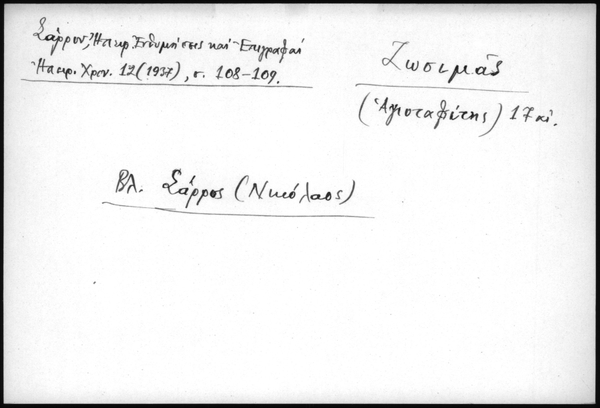 Σάρρου, Ἠπειρ. Ἐνθυμήσεις καὶ Ἐπιγραφαί
Ἠπειρ. Χρον. 12 (1937), σ. 108-109.
Ζωσιμᾶς
(Ἁγιοταφίτης) 17 αἰ.
Βλ. Σάρρος (Νικόλαος)